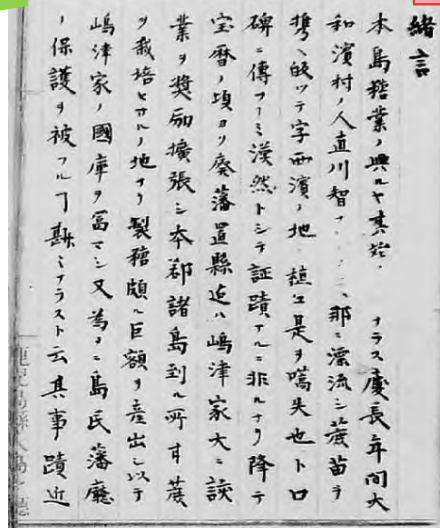 緒言
本島糖業ノ興ルヤ其始 ナラス慶長年間大
和濱村ノ人直川智 那ニ漂流シ蔗苗ヲ
携ヘ皈ツテ字西濱ノ地 植ユ是ヲ嚆矢也ト口
碑ニ傳フルミ漠然トシテ証蹟アルニ非ルナリ降テ
宝暦ノ頃ヨリ廃藩置縣迄ハ嶋津家大ニ該
業ヲ奨励擴張シ本郡諸島到ル所甘蔗
ヲ栽培セサルノ地ナク製糖頗ル巨額ヲ産出シ以テ
嶋津家ノ國庫ヲ冨マシ又為メニ島民藩廳
ノ保護ヲ被フルヿ尠ミナラスト云其事蹟近
鹿児島縣大島 廳